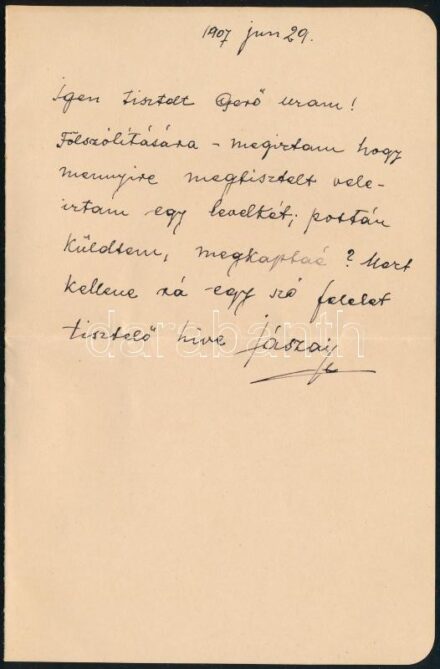 1907 jun 29.
Igen tisztelt Gerő uram!
Fölszólítására – megirtam hogy
mennyire megtisztelt vele –
irtam egy levelkét; postán
küldtem, megkapta é? Mert
kellene rá egy szó felelet
tisztelő hive Jászai
darabanth